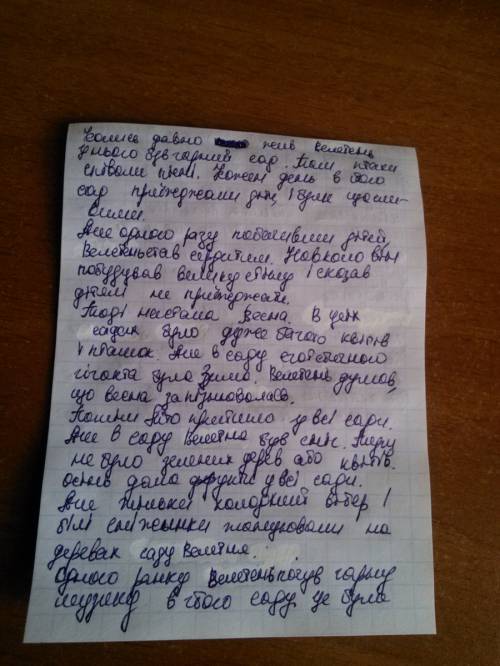 Колись давно жив Велетень
У нього був гарний сад. Там птахи
співали пісні. Кожен день в його
сад приїжджали діти і були щасли-
вими.
Але одного разу побачивши дітей,
Велетень став сердитим. Навколо він
побудував велику стіну і сказав
дітям не приїжджати.
Тоді настала Весна. В усіх
садах було дуже багато квітів
і пташок. Але в саду егоїстичного
гіганта була Зима. Велетень думав,
що весна запізнювалась.
Пізніше літо прийшло у всі сади.
Але в саду Велетня був сніг. Там
не було зелених дерев або квітів.
осінь дала фрукти у всі сади.
Але тільки холодний вітер і
білі сніжинки танцювали на
деревах саду Велетня.
Одного ранку Велетень почув гарну
музику в його саду це була